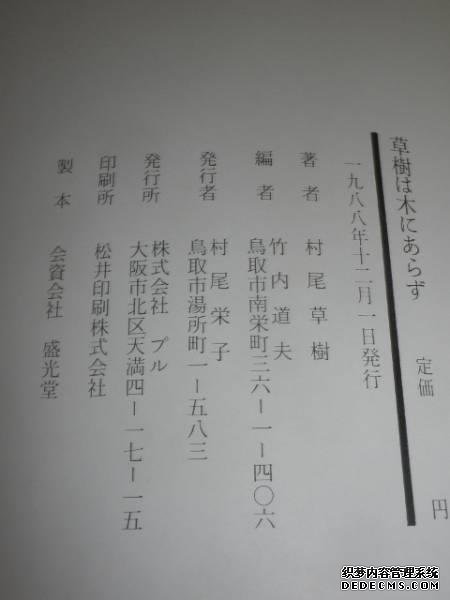 草樹は木にあらず
定価　円
一九八八年十二月一日発行
著者　村尾草樹
編者　竹内道夫
鳥取市南栄町三六ー一ー四〇六
発行者　村尾栄子
鳥取市湯所町一ー五八三
発行所　株式会社　プル
大阪市北区天満四ー一七ー一五
印刷所　松井印刷株式会社
製本　会資会社　盛光堂
织梦内容管理系统
HTTP://WWW.DEDECMS.COM